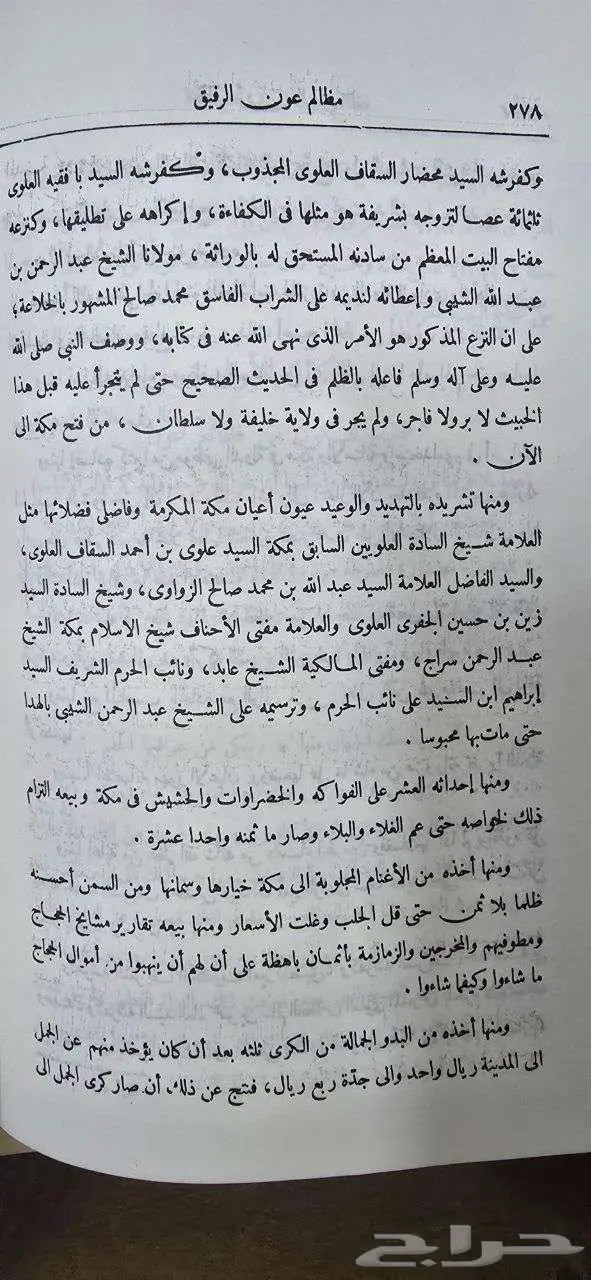 ٢٧٨
مظالم عون الرفيق
وكفرشه السيد محضار السقاف العلوى المجذوب، وكفرشه السيد با فقيه العلوى
ثلثمائة عصا لتزوجه بشريفة هو مثلها فى الكفاءة، وإكراهه على تطليقها، وكنزعه
مفتاح البيت المعظم من سادنه المستحق له بالوراثة، مولانا الشيخ عبد الرحمن بن
عبد الله الشيبى وإعطائه لنديمه على الشراب الفاسق محمد صالح المشهور بالخلاعة؛
على ان النزع المذكور هو الأمر الذى نهى الله عنه فى كتابه، ووصف النبي صلى الله
عليه وعلى آله وسلم فاعله بالظلم فى الحديث الصحيح حتى لم يتجرأ عليه قبل هذا
الخبيث لا بر ولا فاجر، ولم يجر فى ولاية خليفة ولا سلطان، من فتح مكة الى
الآن.
ومنها تشريده بالتهديد والوعيد عيون أعيان مكة المكرمة وفاضلى فضلائها مثل
العلامة شيخ السادة العلويين السابق بمكة السيد علوى بن أحمد السقاف العلوى،
والسيد الفاضل العلامة السيد عبد الله بن محمد صالح الزواوى، وشيخ السادة السيد
زين بن حسين الجفرى العلوى والعلامة مفتى الأحناف شيخ الاسلام بمكة الشيخ
عبد الرحمن سراج، ومفتى المالكية الشيخ عابد، ونائب الحرم الشريف السيد
إبراهيم ابن السنيد على نائب الحرم، وترسيمه على الشيخ عبد الرحمن الشيبى بالهدا
حتى مات بها محبوسا.
ومنها إحداثه العشر على الفواكه والخضراوات والحشيش فى مكة وبيعه التزام
ذلك لخواصه حتى عم الغلاء والبلاء وصار ما ثمنه واحدا عشرة.
ومنها أخذه من الأغنام المجلوبة الى مكة خيارها وسمانها ومن السمن أحسنه
ظلما بلا ثمن حتى قل الجلب وغلت الأسعار ومنها بيعه تقارير مشايخ الحجاج
ومطوفيهم والمخرجين والزمازمة بأثمان باهظة على أن لهم أن ينهبوا من أموال الحجاج
ما شاءوا وكيفما شاءوا.
ومنها أخذه من البدو الجمالة من الكرى ثلثه بعد أن كان يؤخذ منهم عن الجمل
الى المدينة ريال واحد والى جدّة ربع ريال، فنتج عن ذلك، أن صار كرى الجمل الى
حراج